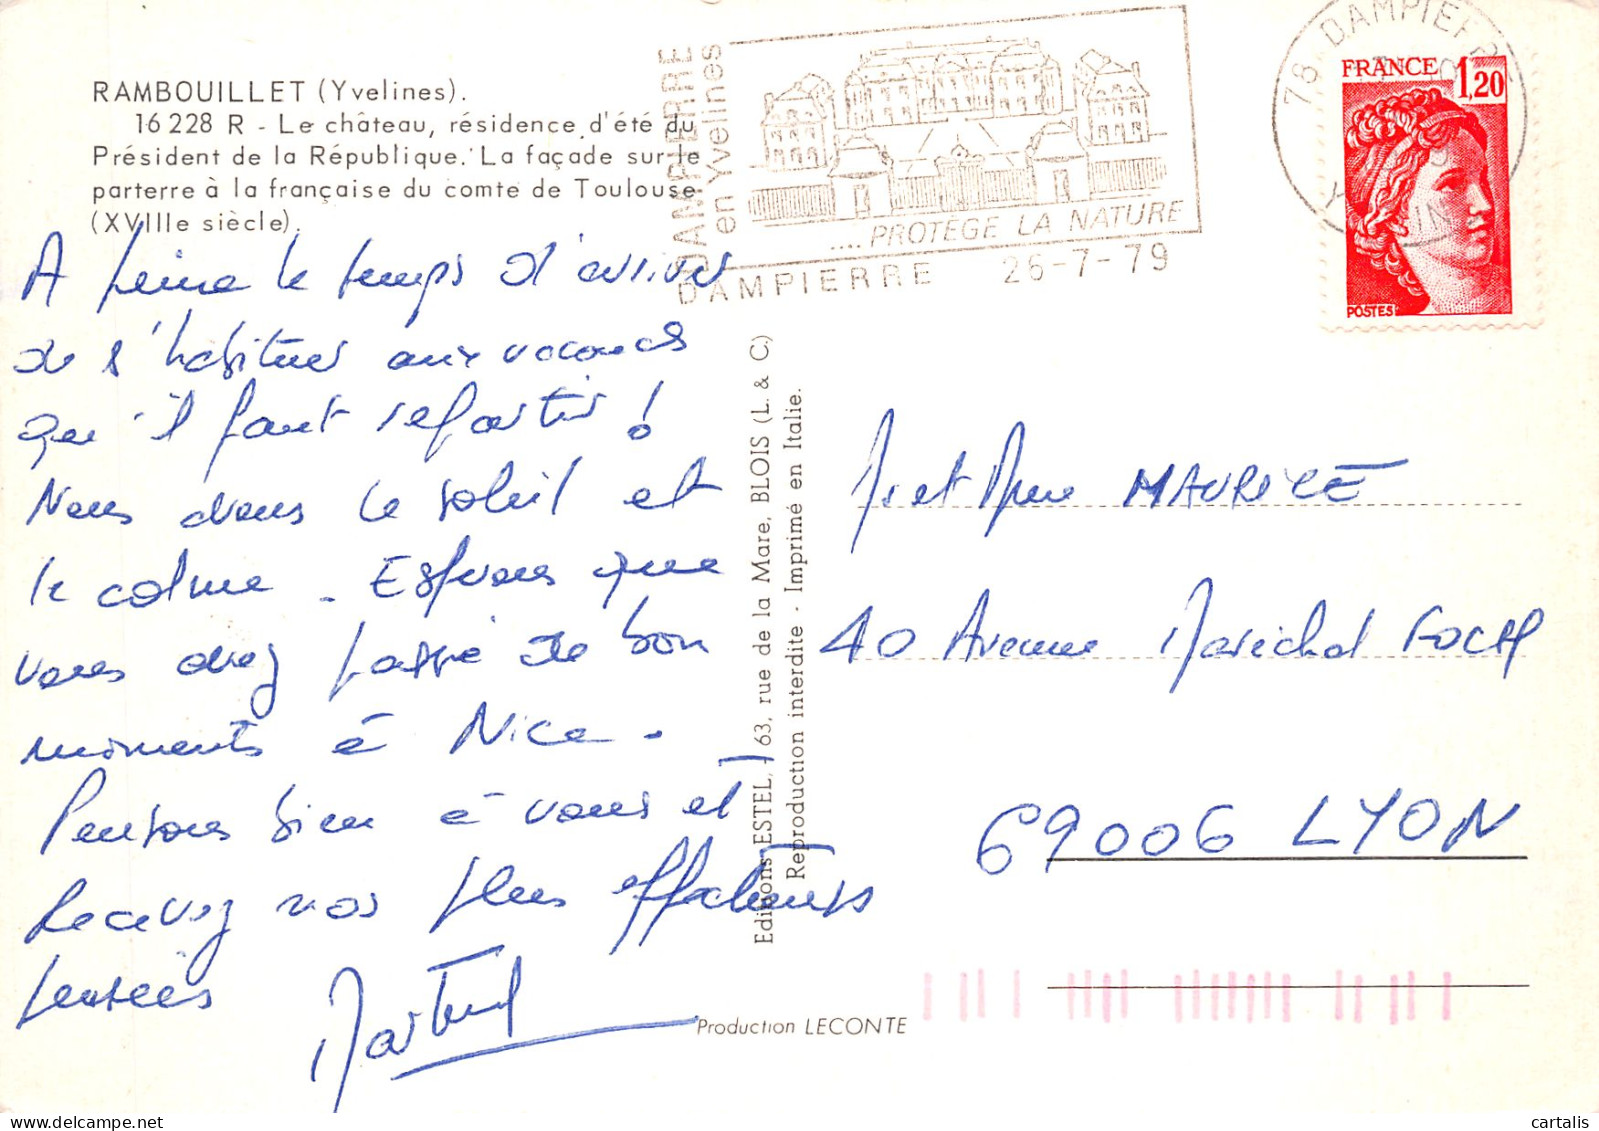 RAMBOUILLET (Yvelines).
16 228 R - Le château, résidence d'été du
Président de la République. La façade sur le
parterre à la française du comte de Toulouse
(XVIIIe siècle).
DAMPIERRE
en Yvelines
.... PROTÈGE LA NATURE
DAMPIERRE 26-7-79
78 DAMPIERRE
YVELINES
FRANCE 1,20
POSTES
A peine le temps d'arriver
de s'habituer aux vacances
qu'il faut repartir !
Nous avons le soleil et
le calme. Espérons que
vous avez passé de bon
moments à Nice.
Pensons bien à vous et
Recevez nos plus affectueuses
pensées
Editions ESTEL, 63, rue de la Mare, BLOIS (L. & C)
Reproduction interdite - Imprimé en Italie.
Mr et Mme MAURICE
40 Avenue Maréchal FOCH
69006 LYON
Production LECONTE
cartalis